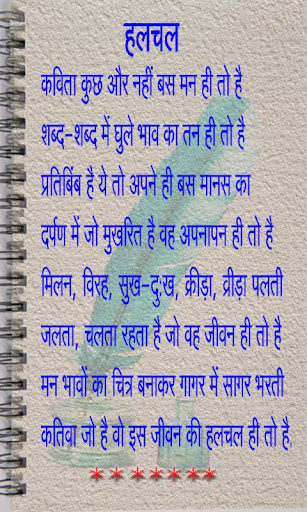 हलचल
कविता कुछ और नहीं बस मन ही तो है
शब्द-शब्द में घुले भाव का तन ही तो है
प्रतिबिंब है ये तो अपने ही बस मानस का
दर्पण में जो मुखरित है वह अपनापन ही तो है
मिलन, विरह, सुख-दुःख, क्रीड़ा, व्रीड़ा पलती
जलता, चलता रहता है जो वह जीवन ही तो है
मन भावों का चित्र बनाकर गागर में सागर भरती
कतिवा जो है वो इस जीवन की हलचल ही तो है,
*******